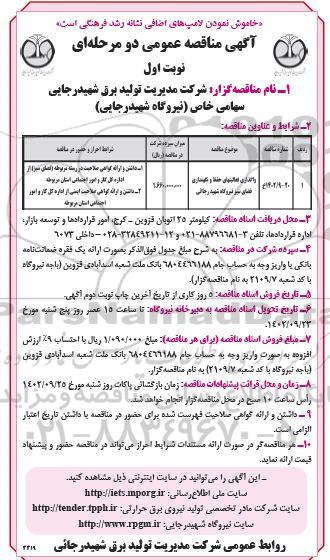 «خاموش نمودن لامپ‌های اضافی نشانه رشد فرهنگی است»
آگهی مناقصه عمومی دو مرحله‌ای
نوبت اول
۱ـ نام مناقصه‌گزار: شرکت مدیریت تولید برق شهیدرجایی
سهامی خاص (نیروگاه شهیدرجایی)
۲ـ شرایط و عناوین مناقصه:
ردیف شماره مناقصه موضوع مناقصه میزان سپرده شرکت در مناقصه (ریال) شرایط احراز و حضور در مناقصه
۱ ۱۴۰۲/۹-۲۰ع واگذاری فعالیتهای حفظ و نگهداری فضای سبز نیروگاه شهید رجائی ۱,۶۶۰,۰۰۰,۰۰۰
۱ـ داشتن و ارائه گواهی صلاحیت در رسته مربوطه (فضای سبز) از اداره کل کار و امور اجتماعی استان مربوطه
۲ـ داشتن و ارائه گواهی صلاحیت ایمنی از اداره کل کار و امور اجتماعی استان مربوطه
۳ـ محل دریافت اسناد مناقصه: کیلومتر ۲۵ اتوبان قزوین ـ کرج، امور قراردادها و توسعه بازار،
اداره قراردادها، تلفن: ۳-۸۸۷۹۶۶۸۱-۰۲۱ و ۱۲-۳۲۸۶۹۲۱۱-۰۲۸ داخلی ۶۰۷۳
۴ـ سپرده شرکت در مناقصه: به شرح مبلغ جدول فوق‌الذکر بصورت ارائه یک فقره ضمانت‌نامه
بانکی یا واریز وجه به حساب جام ۶۸۰۴۴۶۶۱۸۸ بانک ملت شعبه اسدآبادی قزوین (باجه نیروگاه
با کد شعبه ۲۱۰۹/۷) به نام مناقصه‌گزار).
۵ـ تاریخ فروش اسناد مناقصه: ۵ روز کاری از تاریخ آخرین چاپ نوبت دوم آگهی.
۶ـ تاریخ تحویل اسناد مناقصه به دبیرخانه نیروگاه: تا ساعت ۱۵ عصر روز پنج شنبه مورخ
۱۴۰۲/۰۹/۲۳
۷ـ مبلغ فروش اسناد مناقصه (برای هر مناقصه): مبلغ ۱/۰۹۰/۰۰۰ ریال با احتساب ۹٪ ارزش
افزوده به صورت واریز وجه به حساب جام ۶۸۰۴۴۶۶۱۸۸ بانک ملت شعبه اسدآبادی قزوین
(باجه نیروگاه با کد شعبه ۲۱۰۹/۷) به نام مناقصه‌گزار.
۸ـ زمان و محل قرائت پیشنهادات مناقصه: زمان بازگشائی پاکات روز شنبه مورخ ۱۴۰۲/۰۹/۲۵
راس ساعت ۱۰ صبح در محل مناقصه‌گزار انجام خواهد شد.
۹ـ داشتن و ارائه گواهی صلاحیت فهرست شده برای حضور در مناقصه با داشتن تاریخ اعتبار
الزامی است.
۱۰ـ هر مناقصه‌گر در صورت ارائه مستندات شرایط احراز می‌تواند در مناقصه حضور و پیشنهاد
قیمت ارائه نماید.
ـ این آگهی را می‌توانید در سایت اینترنتی ذیل مشاهده کنید.
سایت ملی اطلاع‌رسانی: http://iets.mporg.ir
سایت شرکت مادر تخصصی تولید نیروی برق حرارتی: http://tender.tpph.ir
سایت نیروگاه شهیدرجایی: http://www.rpgm.ir
روابط عمومی شرکت مدیریت تولید برق شهیدرجائی
۳۳۱۹